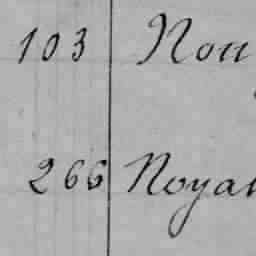 103 Nou
266 Noyal